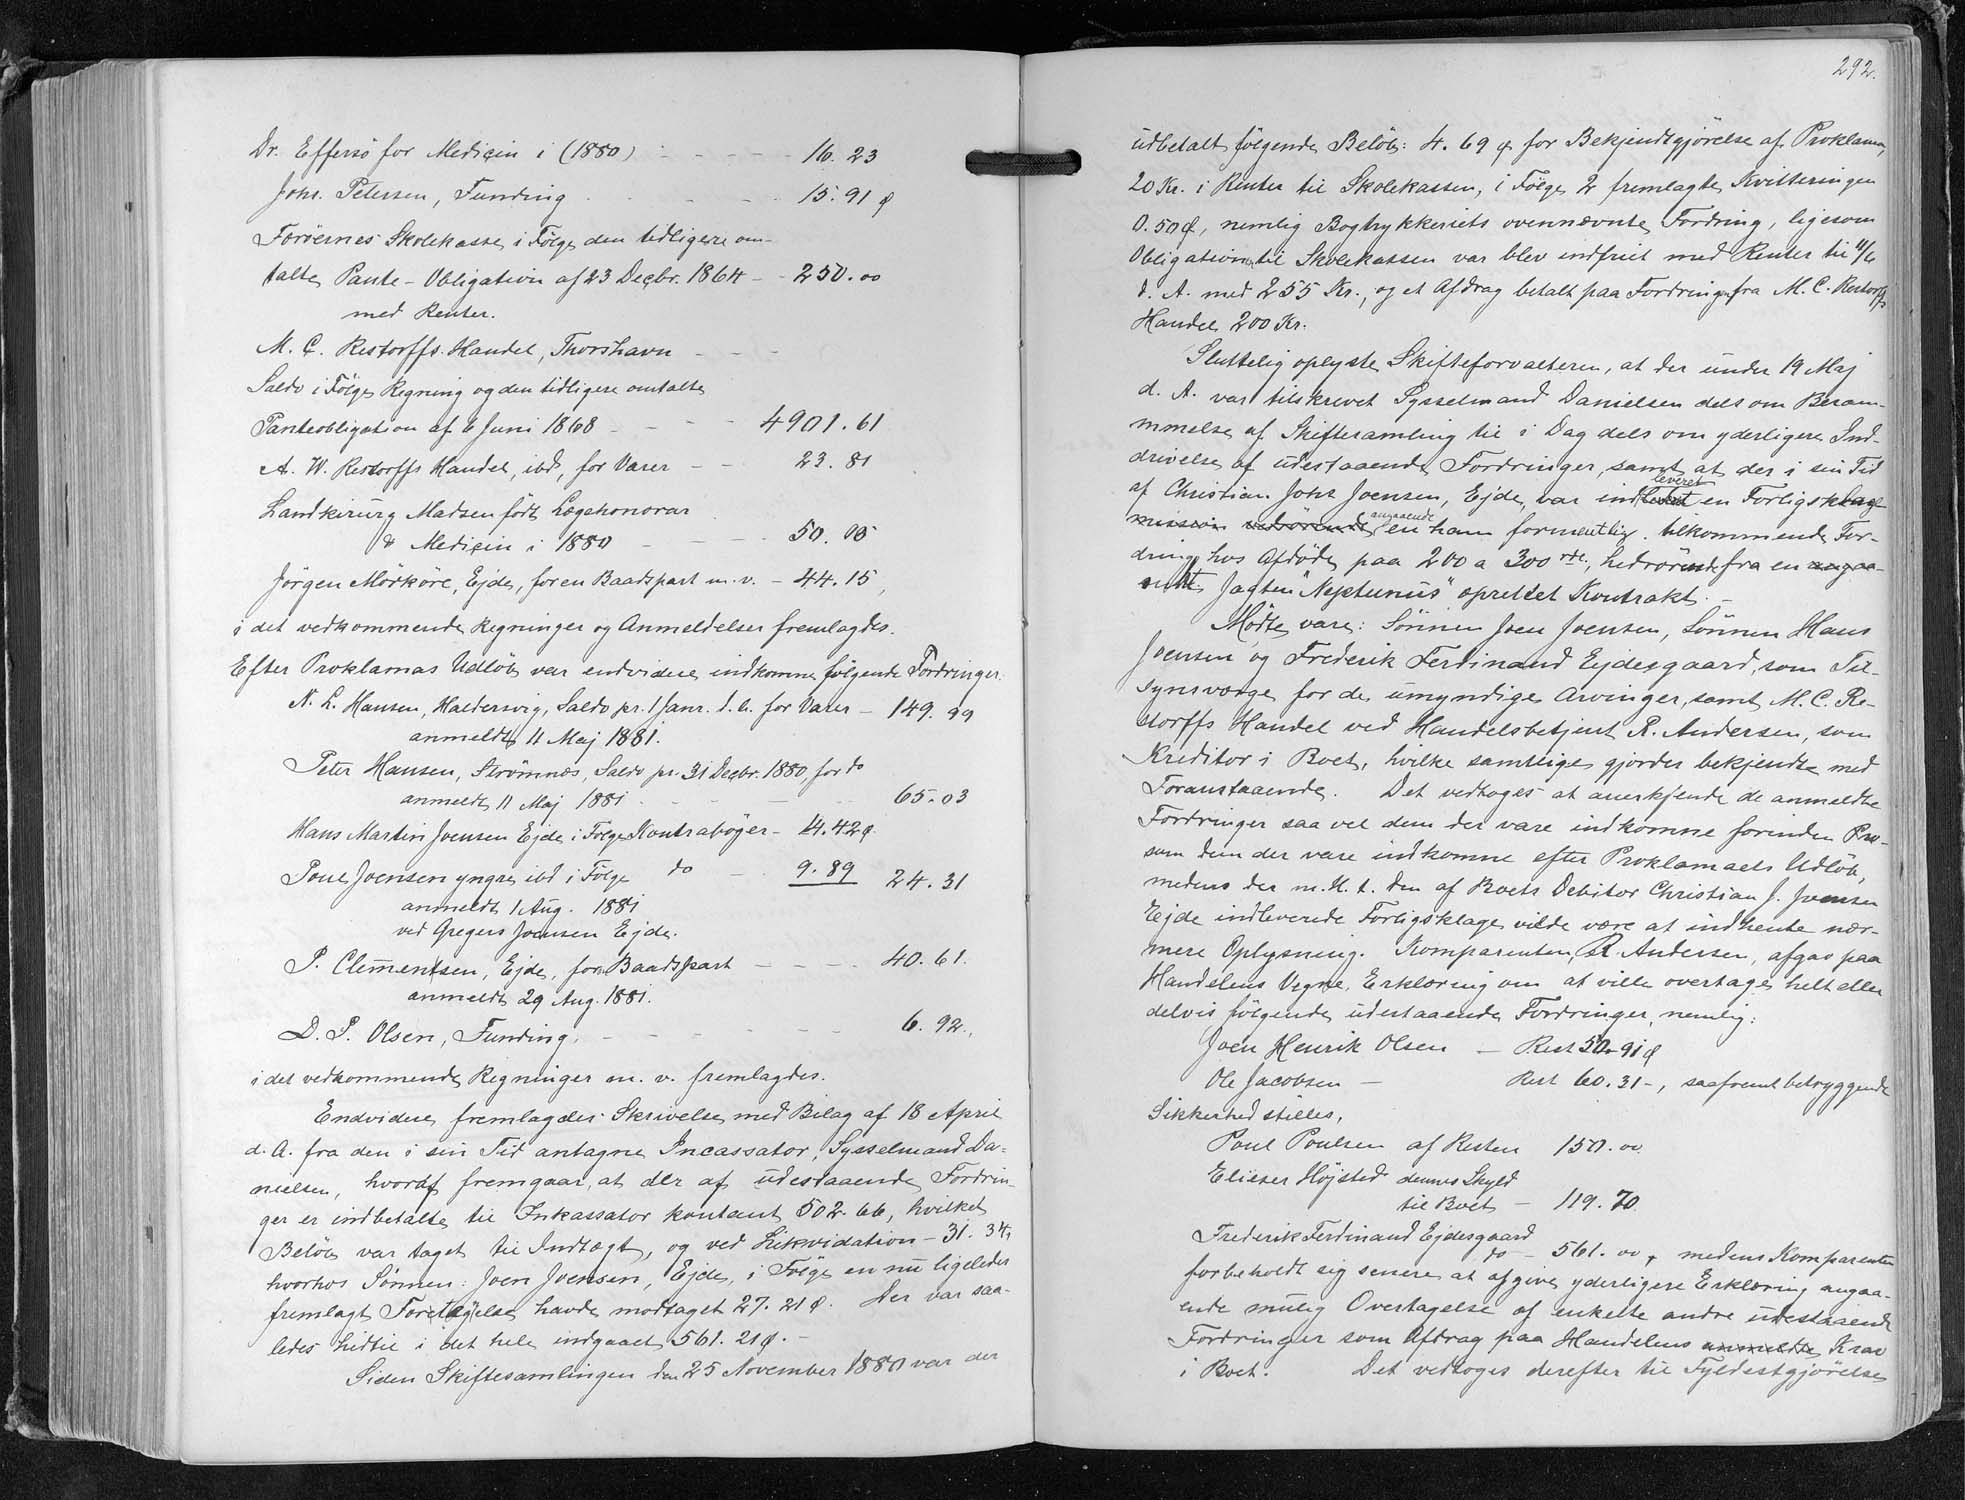 Dr. Effersö for Medicin i (1880) - - - - 16. 23
Johs. Petersen, Funding - - - 15. 91 ø
Færöernes Skolekasse, i Følge den tidligere om-
talte Pante-Obligation af 23 Decbr. 1864 - - 250. 00
med Renter.
M. C. Restorffs Handel, Thorshavn - - -
Saldo i Følge Regning og den tidligere omtalte
Panteobligation af 6 Juni 1868 - - - - 4901. 61
A. W. Restorffs Handel, ibd, for Varer - - 23. 81
Landkirurg Madsen født Lægehonorar
& Medicin i 1880 - - - - 50. 05
Jörgen Mörköre, Ejde, for en Baadspart m. v. - 44. 15,
i det vedkommende Regninger og Anmeldelser fremlagdes.
Efter Proklamas Udløb var endvidere indkomne følgende Fordringer:
N. L. Hansen, Haldersvig, Saldo pr. 1 Janr. d. A. for Varer - 149. 99
anmeldt 11 Maj 1881.
Peter Hansen, Strömnæs, Saldo pr. 31 Decbr. 1880, for do
anmeldt 11 Maj 1881 - - - - 65. 03
Hans Martin Joensen Ejde i Følge Kontrabøger - 14. 42 ø.
Poul Joensen yngre ibd i Følge do - 9. 89 24. 31
anmeldt 1 Aug. 1881
ved Gregers Joensen Ejde.
P. Clementsen, Ejde, for Baadspart - - - - 40. 61.
anmeldt 29 Aug. 1881.
D. P. Olsen, Funding, - - - - - 6. 92.,
i det vedkommende Regninger m. v. fremlagdes.
Endvidere fremlagdes Skrivelse med Bilag af 18 April
d. A. fra den i sin Tid antagne Incassator, Sysselmand Da-
nielsen, hvoraf fremgaar, at der af udestaaende Fordrin-
ger er indbetalte til Inkassator kontant 502. 66, hvilket
Beløb var taget til Indtægt, og ved Likvidation - 31. 34,
hvorhos Sönnen: Joen Joensen, Ejde, i Følge en nu ligeledes
fremlagt Foretegelse havde modtaget 27. 21 ø. Der var saa-
ledes hidtil i det hele indgaaet 561. 21 ø. -
Siden Skiftesamlingen den 25 November 1880 var der
292.
udbetalt følgende Beløb: 4. 69 ø for Bekjendtgjörelse af Proklama,
20 Kr. i Renter til Skolekassen, i Følge 2 fremlagte Kvitteringer
0. 50 ø, nemlig Bogtrykkeriets ovennævnte Fordring, ligesom
Obligation til Skolekassen var blev indfriet med Renter til 11/6
d. A. med 255 Kr., og et Afdrag betalt paa Fordringen fra M. C. Restorffs
Handel 200 Kr.
Sluttelig oplyste Skifteforvalteren, at der under 19 Maj
d. A. var tilskrevet Sysselmand Danielsen dels om Beram-
mmelse af Skiftesamling til i Dag dels om yderligere Ind-
drivelse af udestaaende Fordringer, samt at der i sin Tid
leveret
af Christian Johs Joensen, Ejde, var ind en Forligsklage
angaaende
mission vedrörende en ham formentlig tilkommende For-
dring hos Afdøde paa 200 a 300 rdr., hidrörende fra en angaa-
ende Jagten "Neptunus" oprettet Kontrakt. -
Mödte vare: Sönnen Joen Joensen, Sönnen Hans
Joensen og Frederik Ferdinand Ejdesgaard, som Til-
synsværge for de umyndige Arvinger, samt M. C. Re-
storffs Handel ved Handelsbetjent R. Andersen, som
Kreditor i Boet, hvilke samtlige gjordes bekjendte med
Foranstaaende. Det vedtoges at anerkjende de anmeldte
Fordringer saa vel dem der vare indkomne forinden Pro-
som dem der vare indkomne efter Proklamaets Udløb,
medens der m. H. t. den af Boets Debitor Christian J. Joensen
Ejde indleverede Forligsklage vilde være at indhente nær-
mere Oplysning. Komparenten, R. Andersen, afgav paa
Handelens Vegne, Erklæring om at ville overtage helt eller
delvis følgende udestaaende Fordringer, nemlig:
Joen Henrik Olsen - Rest 50. 91 ø
Ole Jacobsen - Rest 60. 31 -, saafremt betryggende
Sikkerhed stilles,
Poul Poulsen af Resten 150. 00.
Elieser Højsted dennes Skyld
til Boet - 119. 70
Frederik Ferdinand Ejdesgaard
do - 561. 00, medens Komparenten
forbeholdt sig senere at afgive yderligere Erklæring angaa-
ende mulig Overtagelse af enkelte andre udestaaende
Fordringer som Afdrag paa Handelens anmeldte Krav
i Boet. Det vedtoges derefter til Fyldestgjörelse